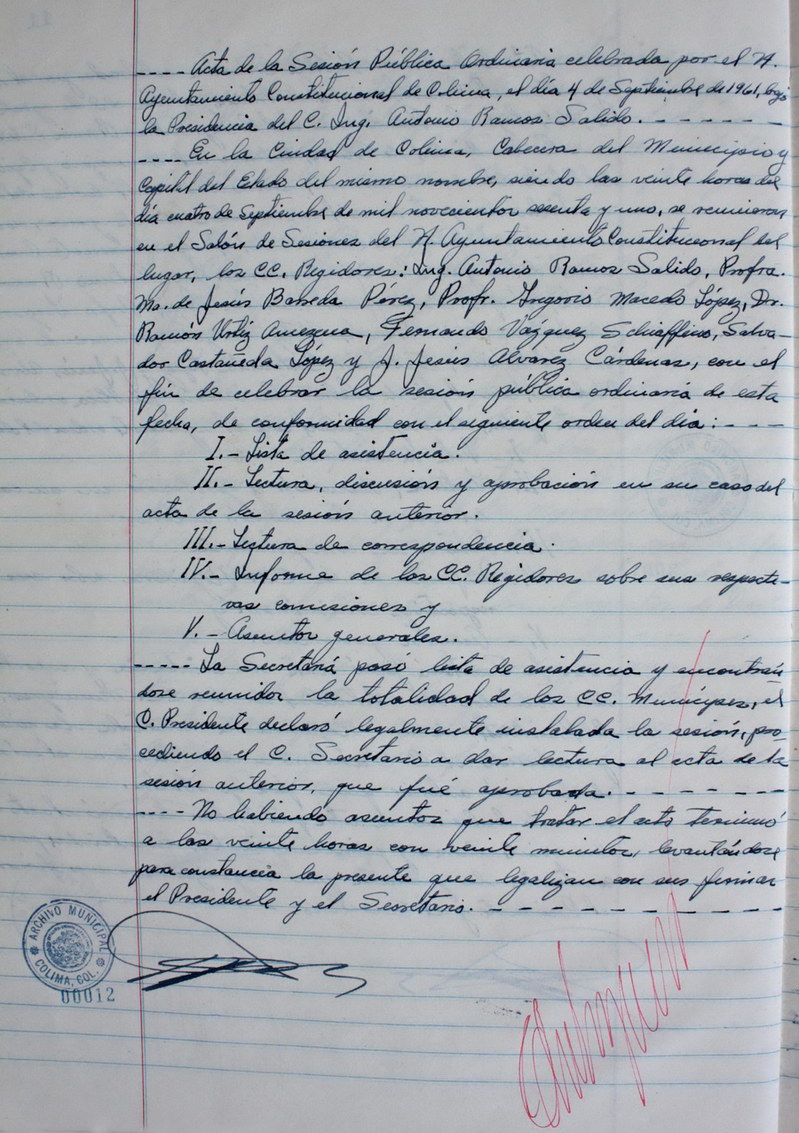 ---- Acta de la Sesión Pública Ordinaria celebrada por el H.
Ayuntamiento Constitucional de Colima, el día 4 de Septiembre de 1961, bajo
la Presidencia del C. Ing. Antonio Ramos Salido. - - - - - -
---- En la Ciudad de Colima, Cabecera del Municipio y
Capital del Estado del mismo nombre, siendo las veinte horas del
día cuatro de Septiembre de mil novecientos sesenta y uno, se reunieron
en el Salón de Sesiones del H. Ayuntamiento Constitucional del
lugar, los CC. Regidores: Ing. Antonio Ramos Salido, Profra.
Ma. de Jesús Barreda Pérez, Profr. Gregorio Macedo López, Dr.
Ramón Urtiz Amezcua, Fernando Vázquez Schiaffino, Salva-
dor Castañeda López y J. Jesús Alvarez Cárdenas, con el
fin de celebrar la sesión pública ordinaria de esta
fecha, de conformidad con el siguiente orden del día: - - -
I.- Lista de asistencia.
II.- Lectura, discusión y aprobación en su caso del
acta de la sesión anterior.
III.- Lectura de correspondencia.
IV.- Informe de los CC. Regidores sobre sus respecti-
vas comisiones y
V.- Asuntos generales.
----- La Secretaría pasó lista de asistencia y encontrán
dose reunidos la totalidad de los CC. Munícipes, el
C. Presidente declaró legalmente instalada la sesión, pro-
cediendo el C. Secretario a dar lectura al acta de la
sesión anterior, que fué aprobada. - - - - - - -
---- No habiendo asuntos que tratar el acto terminó
a las veinte horas con veinte minutos, levantándose
para constancia la presente que legalizan con sus firmas
el Presidente y el Secretario. - - - - - - - - - -
ARCHIVO MUNICIPAL
COLIMA, COL.
00012